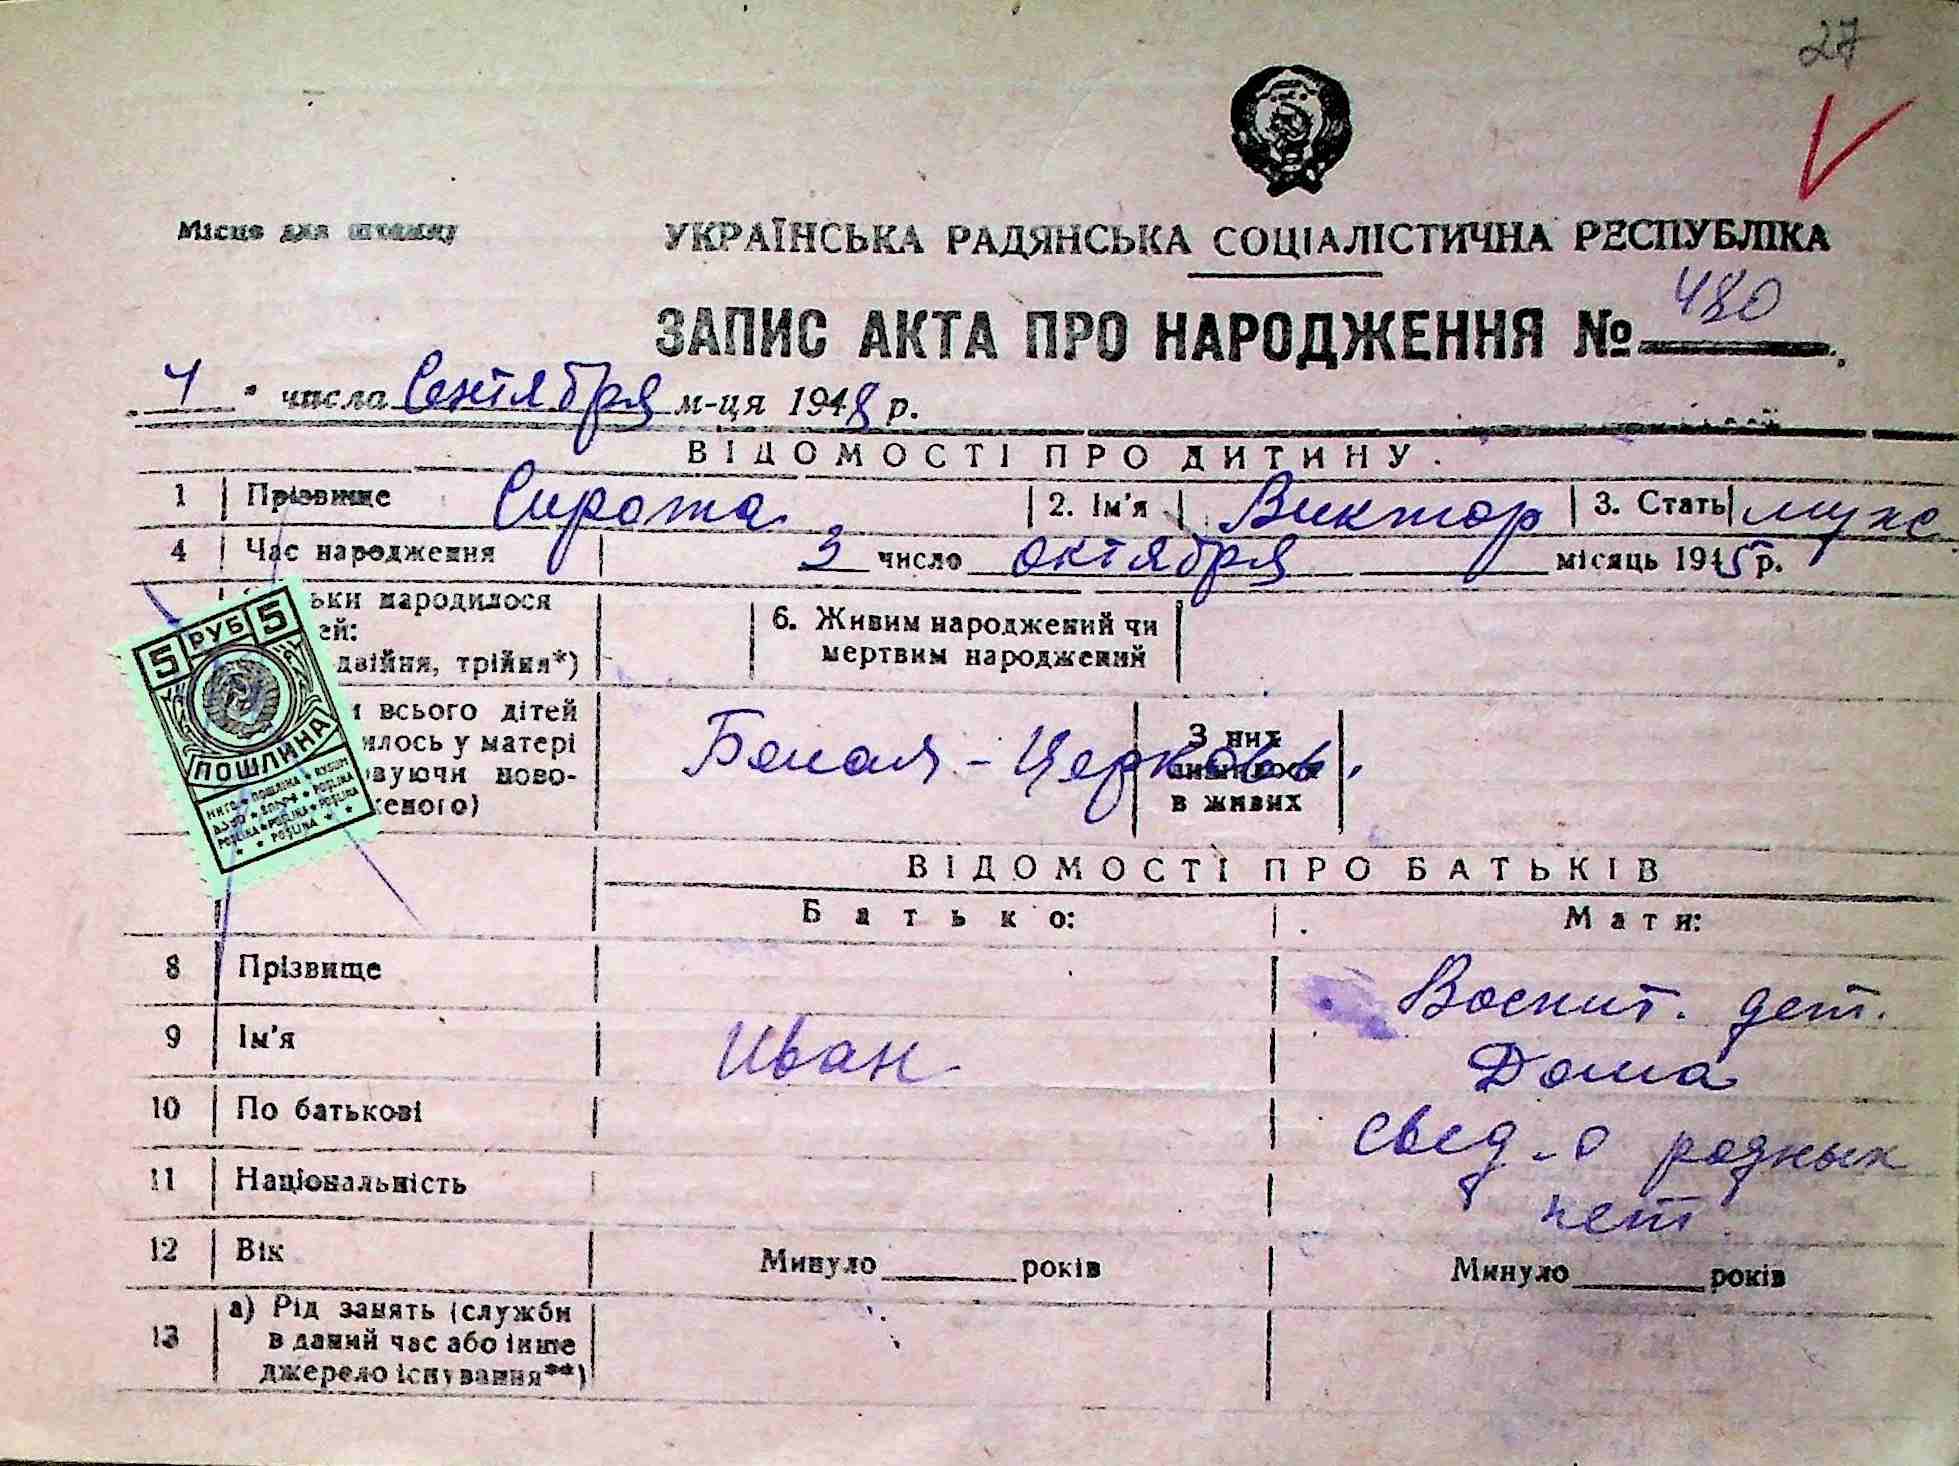 27
Місце для штампу
УКРАЇНСЬКА РАДЯНСЬКА СОЦІАЛІСТИЧНА РЕСПУБЛІКА
ЗАПИС АКТА ПРО НАРОДЖЕННЯ № 480
"4" числа Сентября м-ця 1948 р.
ВІДОМОСТІ ПРО ДИТИНУ.
1 Прізвище Сирота 2. Ім'я Виктор 3. Стать муж
4 Час народження 3 число октября місяць 1945 р.
ьки народилося
ей:
двійня, трійня*)
6. Живим народжений чи
мертвим народжений
и всього дітей
илось у матері
овуючи ново-
женого)
Белая-Церковь.
З них
лишилося
в живих
5 РУБ 5
ПОШЛИНА
ВІДОМОСТІ ПРО БАТЬКІВ
Батько: Мати:
8 Прізвище Воспит. дет.
9 Ім'я Иван Дома
10 По батькові свед. о родных
11 Національність нет
12 Вік Минуло ______ років Минуло ______ років
13 а) Рід занять (служби
в даний час або інше
джерело існування**)